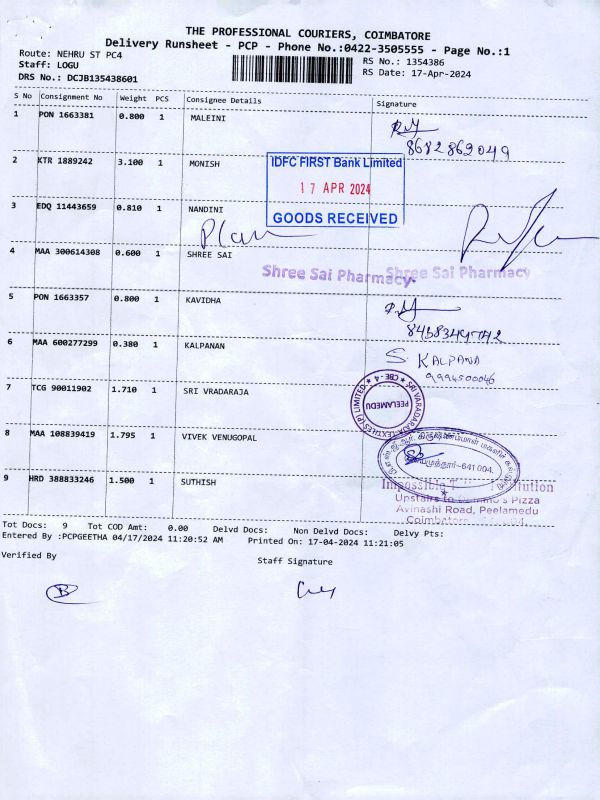 THE PROFESSIONAL COURIERS, COIMBATORE
Delivery Runsheet - PCP - Phone No.:0422-3505555 - Page No.:1
Route: NEHRU ST PC4
RS No.: 1354386
Staff: LOGU
RS Date: 17-Apr-2024
DRS No.: DCJB135438601
S No Consignment No Weight PCS Consignee Details Signature
1 PON 1663381 0.800 1 MALEINI
8682869049
2 KTR 1889242 3.100 1 MONISH
IDFC FIRST Bank Limited
17 APR 2024
GOODS RECEIVED
3 EDQ 11443659 0.810 1 NANDINI
4 MAA 300614308 0.600 1 SHREE SAI
Shree Sai Pharmacy
Shree Sai Pharmacy
5 PON 1663357 0.800 1 KAVIDHA
6 MAA 600277299 0.380 1 KALPANAN
S. KALPANA
9994500046
7 TCG 90011902 1.710 1 SRI VRADARAJA
SRI VARADARAJA TEXTILES (P) LIMITED ★ CBE - 4 ★
PEELAMEDU
8 MAA 108839419 1.795 1 VIVEK VENUGOPAL
கிருஷ்ணம்மாள் மகளிர்
641 004.
9 HRD 388833246 1.500 1 SUTHISH
Impossible
Upstairs to Domino's Pizza
Avinashi Road, Peelamedu
Coimbatore
Tot Docs: 9 Tot COD Amt: 0.00 Delvd Docs: Non Delvd Docs: Delvy Pts:
Entered By :PCPGEETHA 04/17/2024 11:20:52 AM Printed On: 17-04-2024 11:21:05
Verified By
Staff Signature